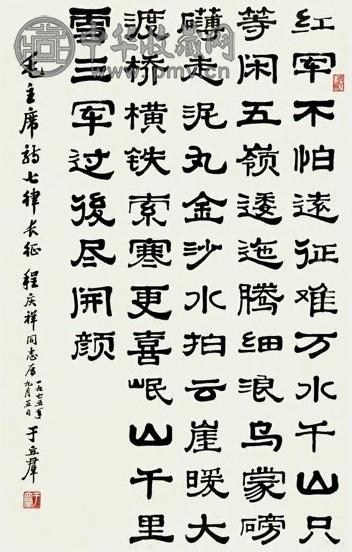 中华收藏网
红军不怕遠征难万水千山只
等闲五嶺逶迤腾细浪乌蒙磅
礴走泥丸金沙水拍云崖暖大
渡桥横铁索寒更喜岷山千里
雪三军过後尽开颜
毛主席诗七律长征 程庆祥同志属 一九七五年九月五日 于立群